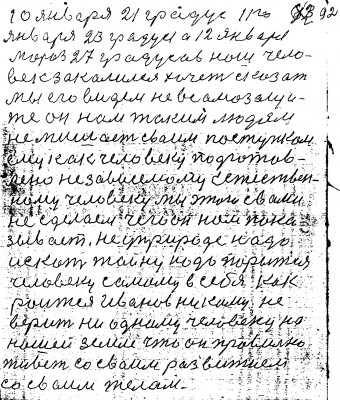 10 января 21 градус 11го 92
января 23 градуса 12 января
мороз 27 градусав нош чело-
век закалился хочет сказат
мы его видем не в самозащи-
те он нам таким людям
не мишает своим поступком
ему как человеку подготов-
лено независемому естествен-
ному человеку мы этого свами
не сделаем чего он нам пока
зывает. не природе надо
искат тайну надо порится
человеку самому в себя как
роится Иванов никому не
верит ни одному человеку на
нашей земли что он правилно
живет со своим развитием
со своим телам.